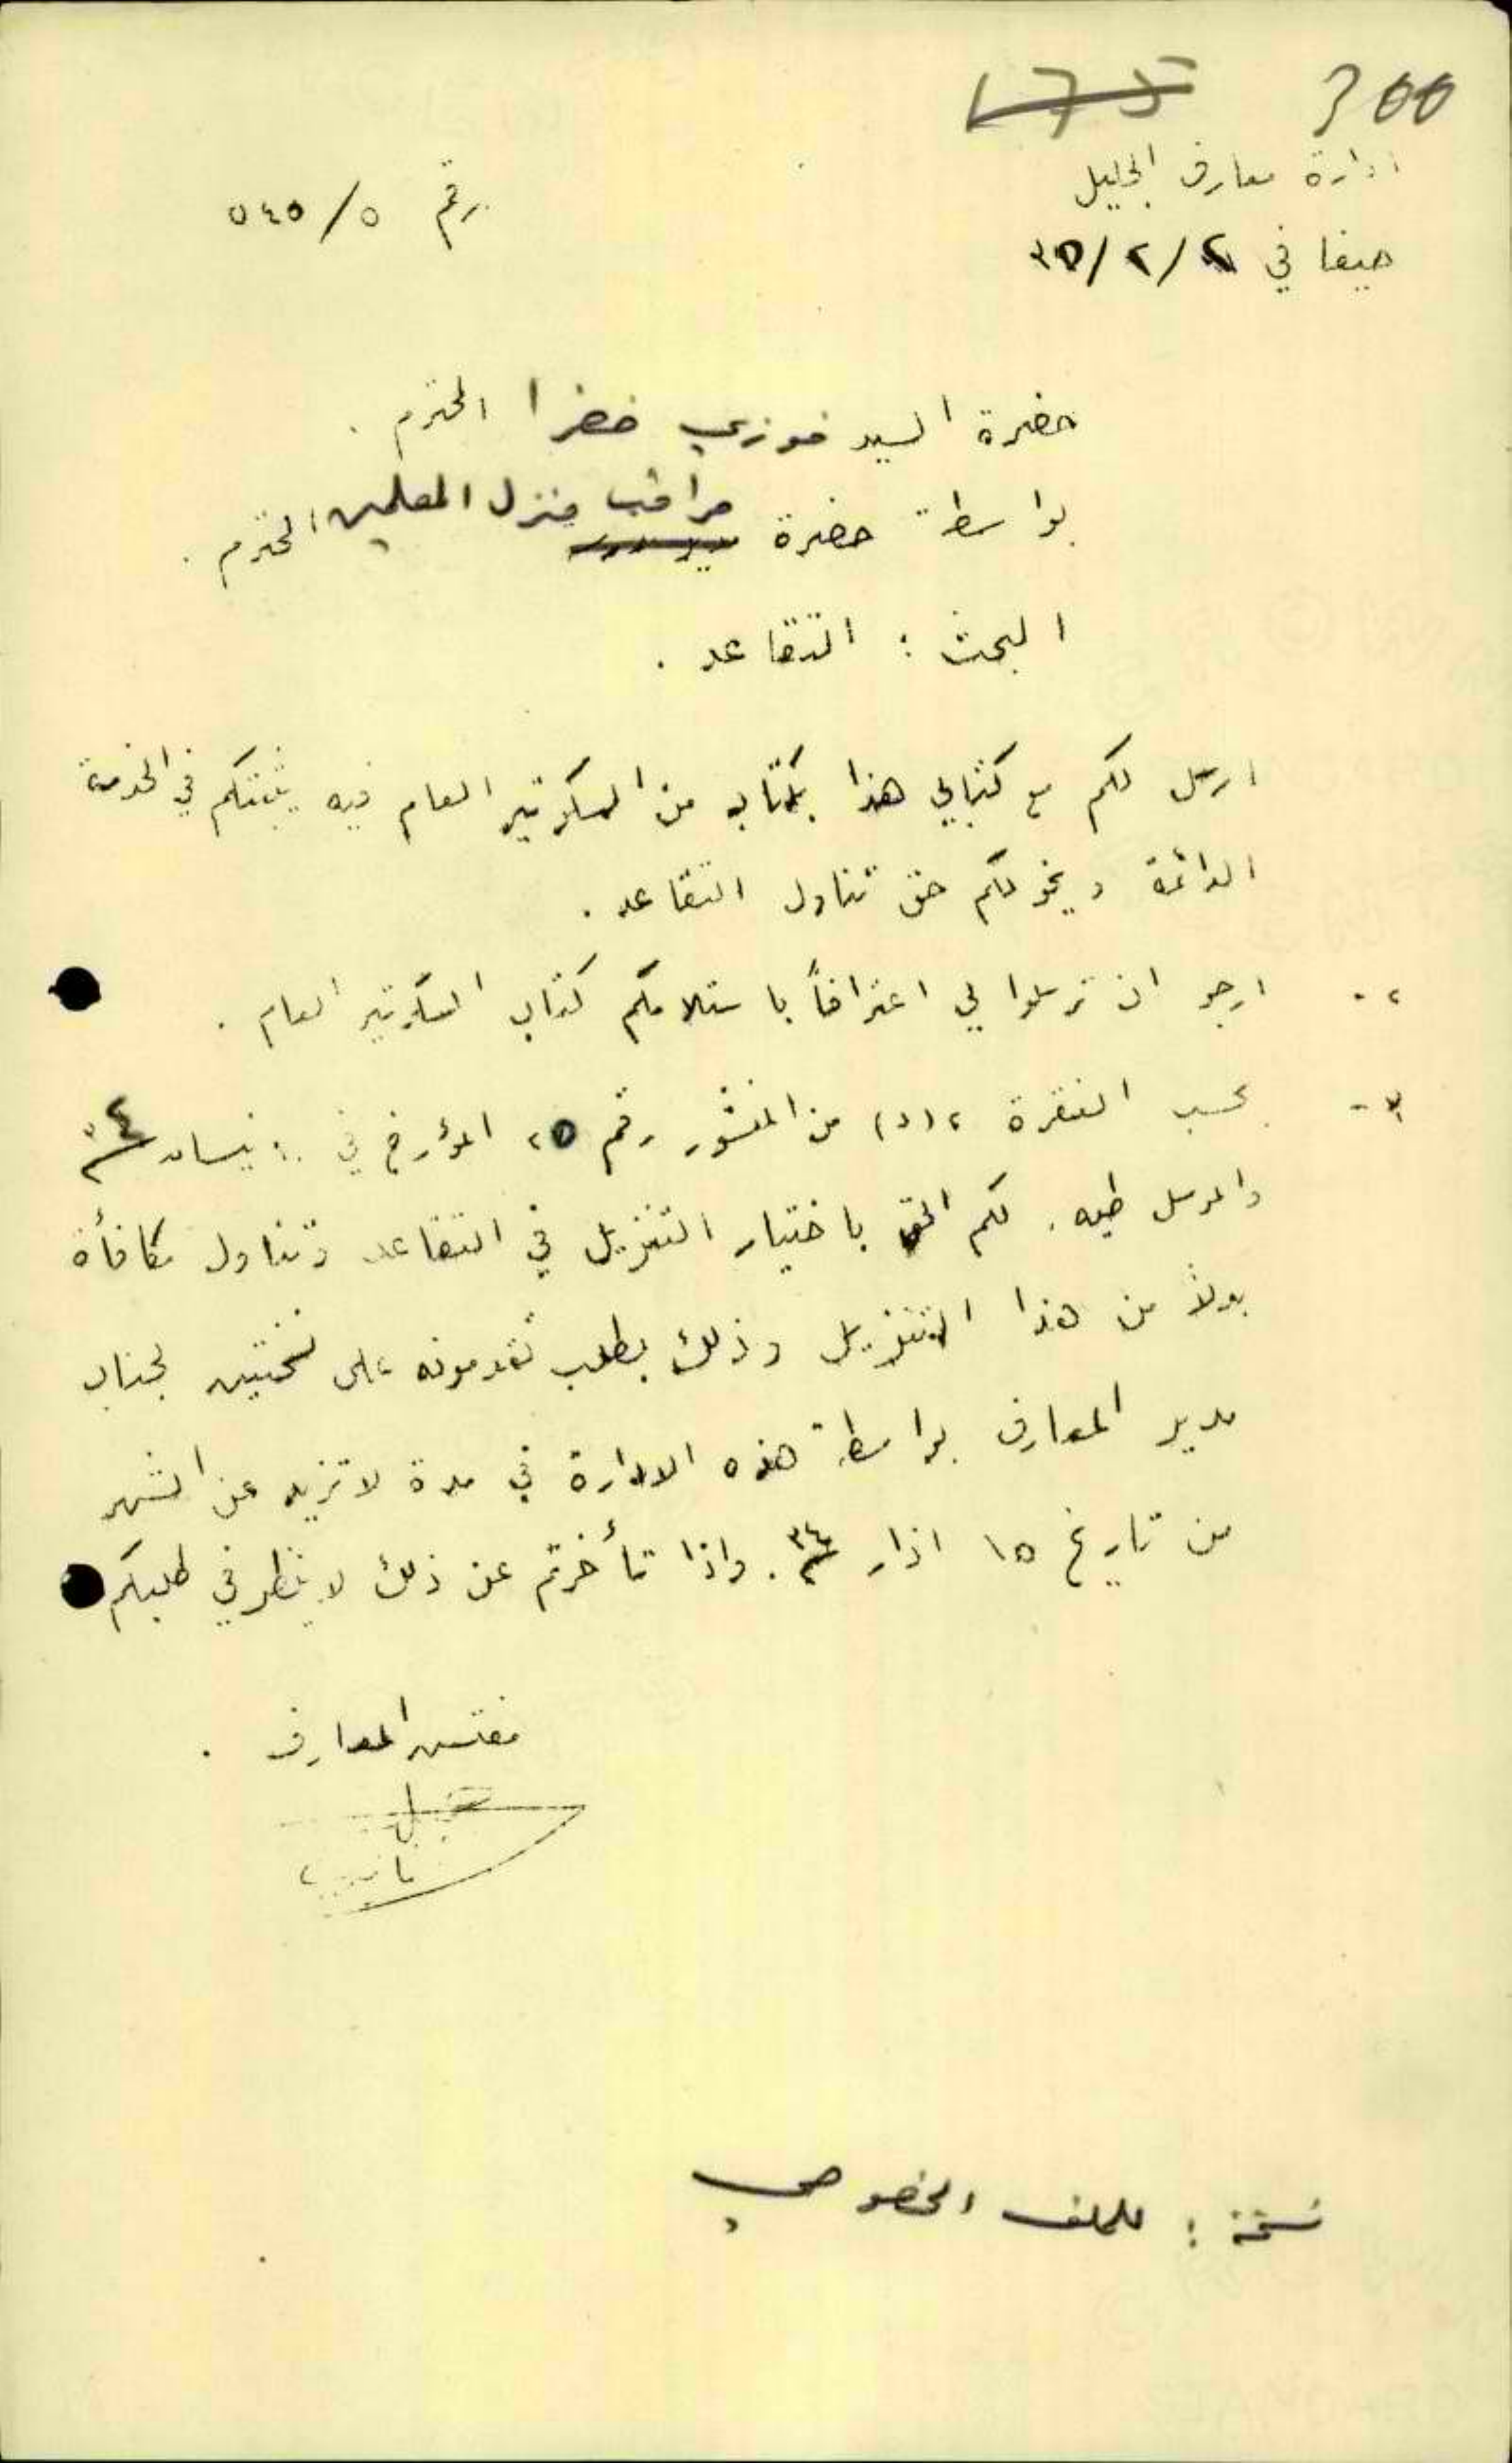 175 300
ادارة معارف الجليل
رقم ٥/٥٤٥
حيفا في ٢/٢/٣٥
حضرة السيد فوزي خضرا المحترم .
بواسطة حضرة مراقب منزل المعلمين المحترم .
البحث : التقاعد .
ارسل لكم مع كتابي هذا بكتاب من السكرتير العام فيه يثبتكم في الخدمة
الدائمة ويخولكم حق تناول التقاعد .
٢- ارجو ان ترسلوا لي اعترافاً باستلامكم كتاب السكرتير العام .
٣- بحسب الفقرة ٢(د) من المنشور رقم ٢٥ المؤرخ في نيسان ٣٤
والمرسل طيه . لكم الحق باختيار التنزيل في التقاعد وتناول مكافأة
بدلاً من هذا التنزيل وذلك بطلب تقدمونه على نسختين لجناب
مدير المعارف بواسطة هذه الادارة في مدة لا تزيد عن الشهر
من تاريخ ١٥ اذار ٣٤ . واذا تأخرتم عن ذلك لا ينظر في طلبكم
مفتش المعارف .
نسخة : للملف الخصوصي